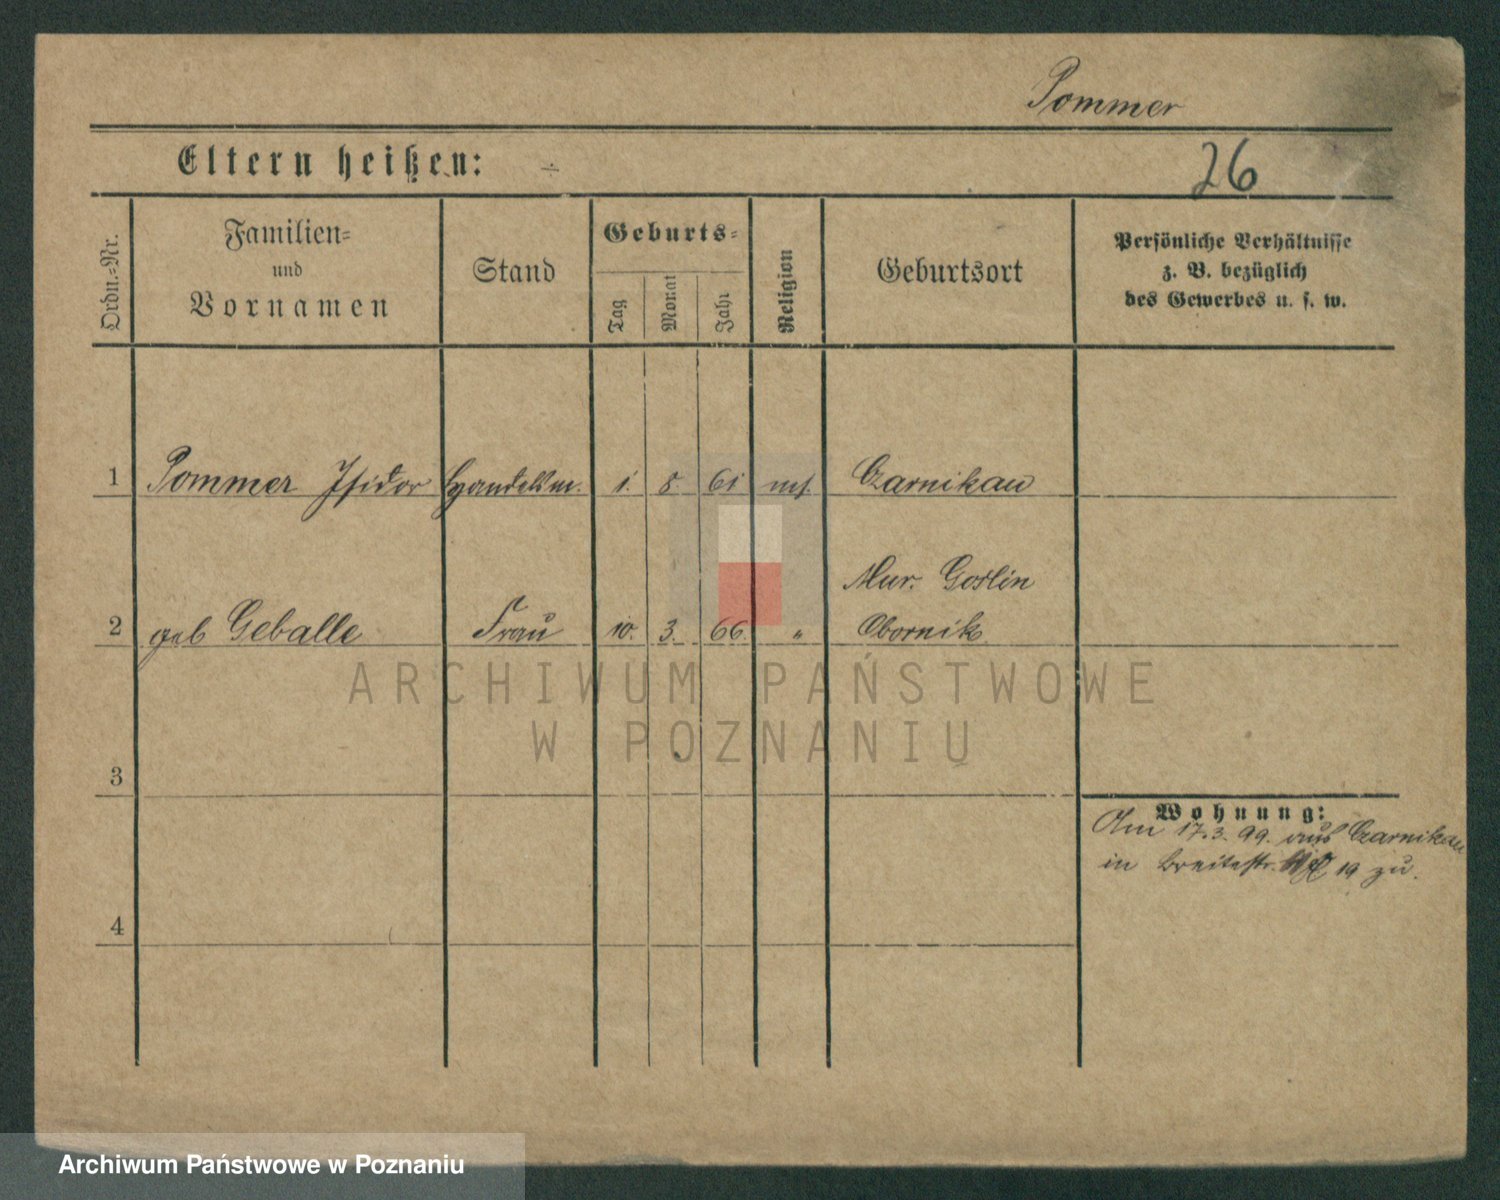 Pommer
Eltern heißen: ÷
26
Ordn.=Nr.
Familien=
und
Vornamen
Stand
Geburts=
Tag
Monat
Jahr
Religion
Geburtsort
Persönliche Verhältnisse
z. B. bezüglich
des Gewerbes u. s. w.
1 Pommer Isidor Handelsm. 1. 8. 61 mos. Czarnikau
Mur. Goslin
2 geb Geballe Frau 10. 3. 66 " Obornik
ARCHIWUM PAŃSTWOWE
W POZNANIU
3
Wohnung:
Am 17.3.99. aus Czarnikau
in Breitestr. 19 zu.
4
Archiwum Państwowe w Poznaniu